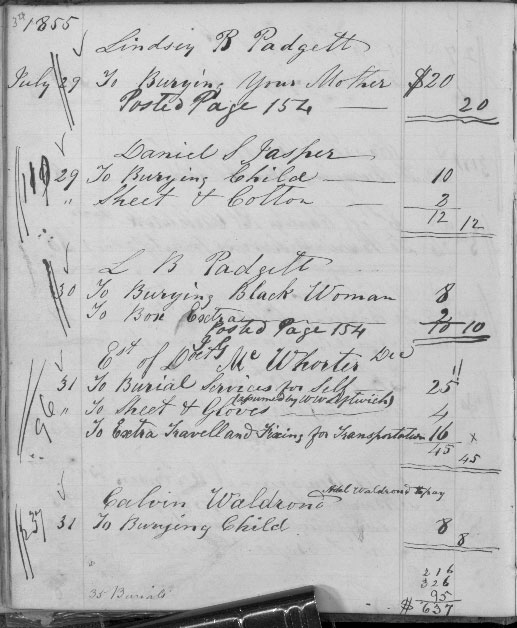 1855
Lindsey R Padgett
July 29 To Burying Your Mother $20
Posted Page 154 — 20
Daniel S Jasper
119
29 To Burying Child — 10
" Sheet & Cotton — 2
12 12
L B Padgett
30 To Burying Black Woman 8
To Box Extra 2
Posted Page 154 10 10
Est of Doct Mc Whorter Decd
31 To Burial Services for Self 25
(assumed by W W Leftwich)
" To Sheet & Gloves 4
96
To Extra Travel and Fixing for Transportation 16 x
45 45
Calvin Waldrond
Waldrond to pay
31 To Burying Child 8 8
35 Burials
216
326
95
$637